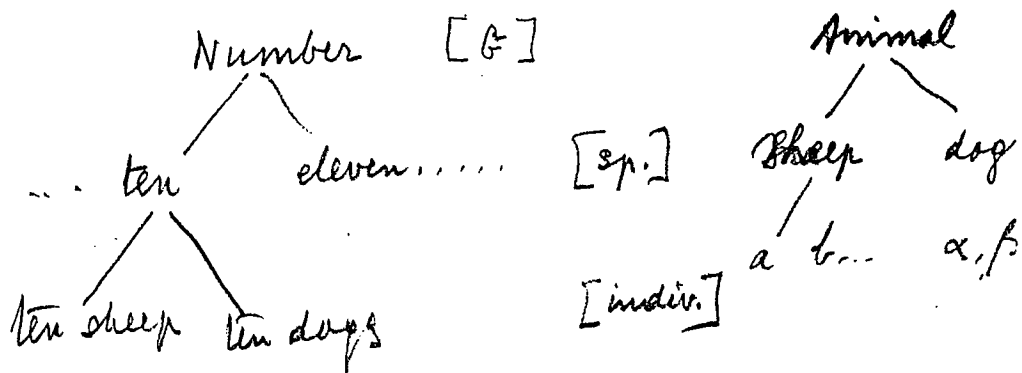 Number [G] Animal
... ten eleven..... [sp.] Sheep dog
a b... α, β
ten sheep ten dogs [indiv.]